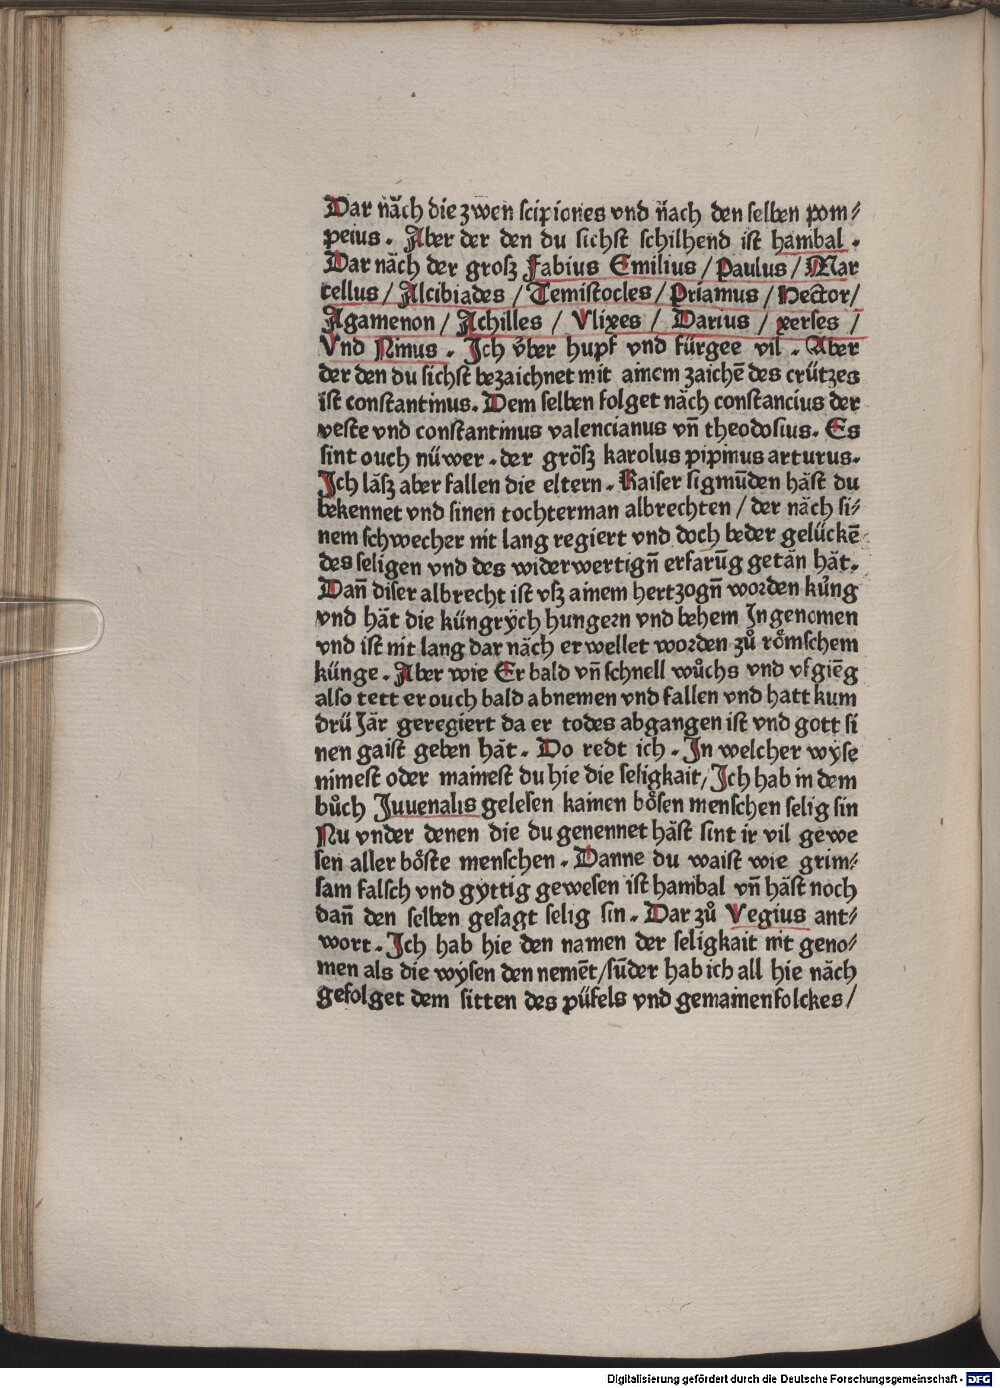 Dar nãch die zwen scipiones vnd nach den selben pom⸗
peius . Aber der den du sichst schilhend ist hanibal .
Dar nãch der grosz Fabius Emilius / Paulus / Mar
cellus / Alcibiades / Temistocles / Priamus / Hector /
Agamenon / Achilles / Vlixes / Darius / xerses /
Vnd Ninus . Jch v̈ber hupf vnd fürgee vil . Aber
der den du sichst bezaichnet mit ainem zaichē des crützes
ist constantinus. Dem selben folget nãch constancius der
veste vnd constantinus valencianus vñ theodosius. Es
sint ouch nüwer . der grösz karolus pipinus arturus.
Jch lãsz aber fallen die eltern . Kaiser sigmūden hãst du
bekennet vnd sinen tochterman albrechten / der nãch si⸗
nem schwecher nit lang regiert vnd doch beder gelückē
des seligen vnd des widerwertigñ erfarūg getãn hãt.
Dañ diser albrecht ist vsz ainem hertzogñ worden kúng
vnd hãt die küngrÿch hungern vnd behem Jngenomen
vnd ist nit lang dar nãch erwellet worden zů römschem
künge . Aber wie Er bald vñ schnell wůchs vnd vfgiēg
also tett er ouch bald abnemen vnd fallen vnd hatt kum
drü Jãr geregiert da er todes abgangen ist vnd gott si
nen gaist geben hãt . Do redt ich . Jn welcher wÿse
nimest oder mainest du hie die seligkait / Jch hab in dem
bůch Juuenalis gelesen kainen bösen menschen selig sin
Nu vnder denen die du genennet hãst sint ir vil gewe
sen aller böste menschen . Danne du waist wie grim⸗
sam falsch vnd gyttig gewesen ist hanibal vñ hãst noch
dañ den selben gesagt selig sin . Dar zů Vegius ant⸗
wort . Jch hab hie den namen der seligkait nit geno⸗
men als die wÿsen den nemēt / sūder hab ich all hie nãch
gefolget dem sitten des püfels vnd gemainen folckes /
Digitalisierung gefördert durch die Deutsche Forschungsgemeinschaft - DFG